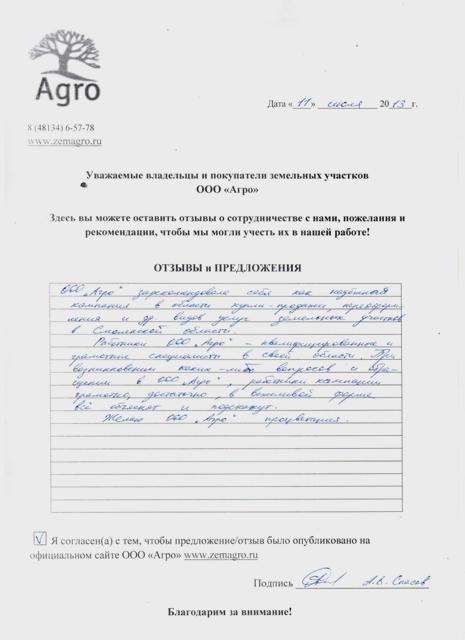 Agro
Дата «11» июля 2013 г.
8 (48134) 6-57-78
www.zemagro.ru
Уважаемые владельцы и покупатели земельных участков
ООО «Агро»
Здесь вы можете оставить отзывы о сотрудничестве с нами, пожелания и
рекомендации, чтобы мы могли учесть их в нашей работе!
ОТЗЫВЫ и ПРЕДЛОЖЕНИЯ
ООО „Агро" зарекомендовало себя как надёжная
компания в области купли-продажи, переоформ-
ления и др. видов услуг земельных участков
в Смоленской области.
Работники ООО „Агро" - квалифицированные и
грамотные специалисты в своей области. При
возникновении каких-либо вопросов и обра-
щении в ООО „Агро", работники компании
грамотно, достаточно, в вежливой форме
всё объяснят и подскажут.
Желаю ООО „Агро" процветания.
Я согласен(а) с тем, чтобы предложение/отзыв было опубликовано на
официальном сайте ООО «Агро» www.zemagro.ru
Подпись А.В. Спасов
Благодарим за внимание!